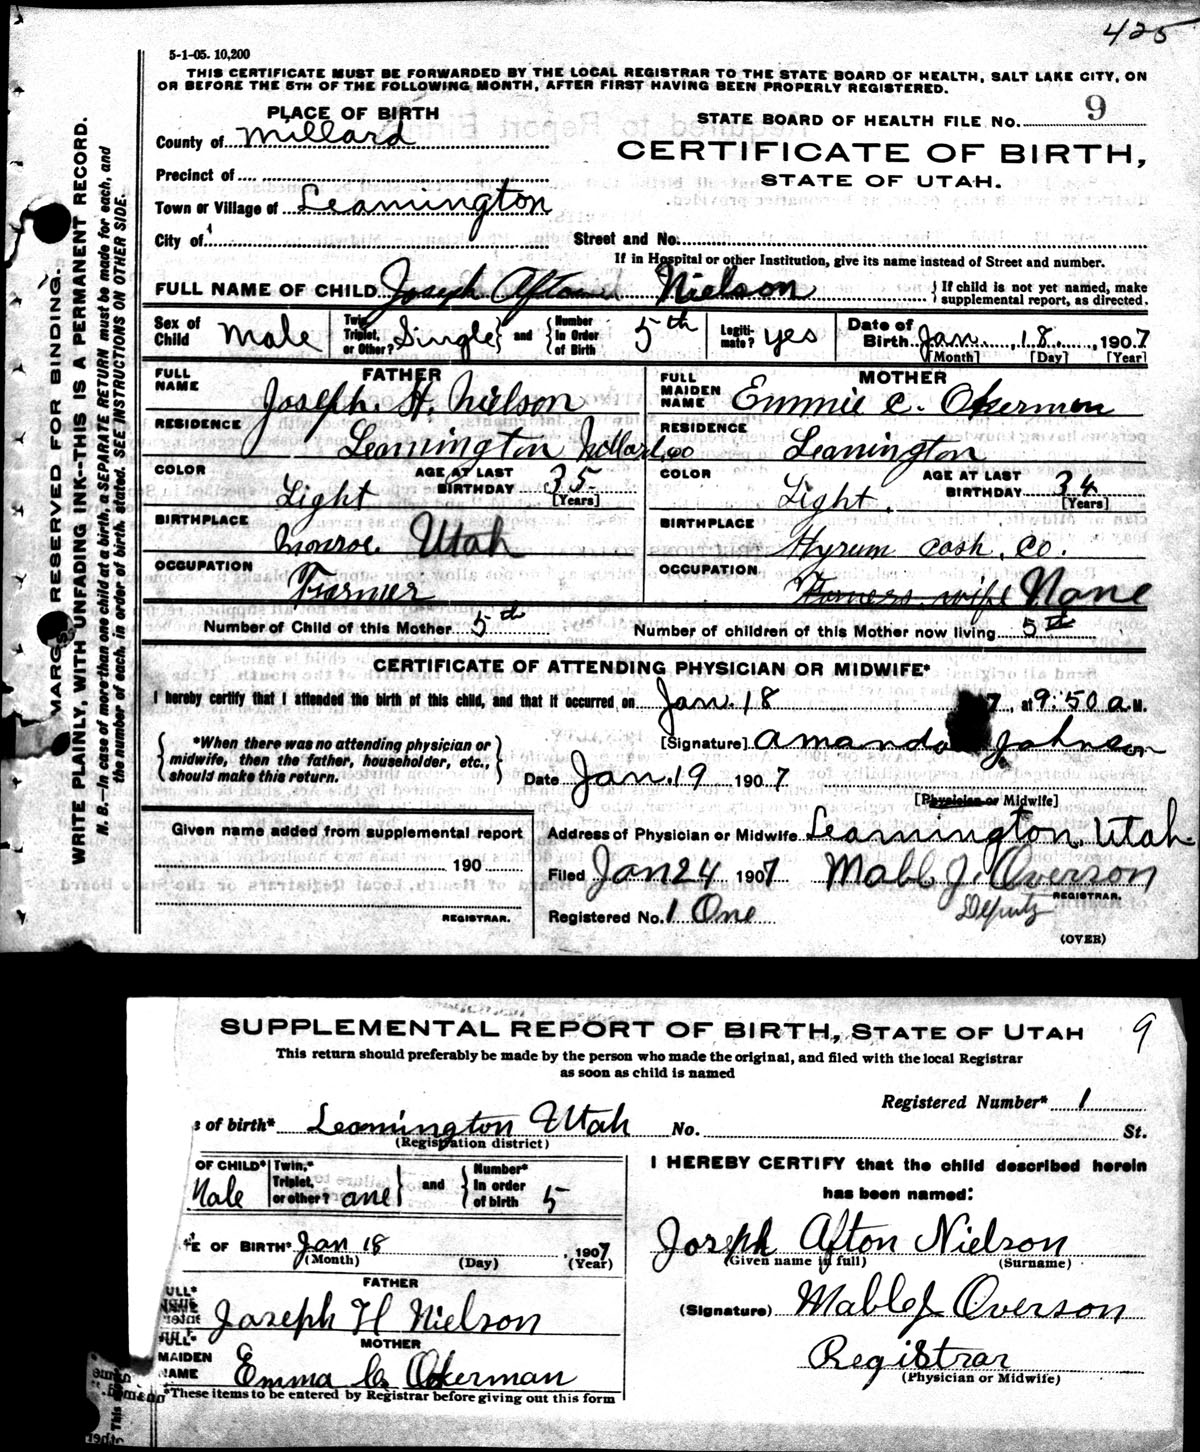 425
5-1-05. 10,200
THIS CERTIFICATE MUST BE FORWARDED BY THE LOCAL REGISTRAR TO THE STATE BOARD OF HEALTH, SALT LAKE CITY, ON
OR BEFORE THE 5TH OF THE FOLLOWING MONTH, AFTER FIRST HAVING BEEN PROPERLY REGISTERED.
PLACE OF BIRTH
STATE BOARD OF HEALTH FILE NO. 9
County of Millard
CERTIFICATE OF BIRTH,
STATE OF UTAH.
Precinct of
Town or Village of Leamington
City of Street and No.
If in Hospital or other Institution, give its name instead of Street and number.
FULL NAME OF CHILD Joseph Afton Nielson } If child is not yet named, make
supplemental report, as directed.
Sex of Child Male Twin, Triplet, or Other? Single } and { Number In Order of Birth 5th Legiti-mate? yes Date of Birth Jan. 18. 1907
[Month] [Day] [Year]
FATHER
FULL NAME Joseph. H. Nielson
RESIDENCE Leamington Millard co
COLOR Light AGE AT LAST BIRTHDAY 35 [Years]
BIRTHPLACE Monroe. Utah
OCCUPATION Farmer
MOTHER
FULL MAIDEN NAME Emmie C. Okerman
RESIDENCE Leamington
COLOR Light. AGE AT LAST BIRTHDAY 34 [Years]
BIRTHPLACE Hyrum Cash. Co.
OCCUPATION Farmers. wife None
Number of Child of this Mother 5th Number of children of this Mother now living 5th
CERTIFICATE OF ATTENDING PHYSICIAN OR MIDWIFE*
I hereby certify that I attended the birth of this child, and that it occurred on Jan. 18 7, at 9:50 a.M.
{ *When there was no attending physician or
midwife, then the father, householder, etc.,
should make this return. }
[Signature] Amanda Johnson
Date Jan. 19 1907
[Physician or Midwife]
Given name added from supplemental report
190
REGISTRAR.
Address of Physician or Midwife Leamington, Utah
Filed Jan 24 1907 Mabl J. Overson
REGISTRAR.
Deputy
Registered No. 1 One
(OVER)
MARGIN RESERVED FOR BINDING.
WRITE PLAINLY, WITH UNFADING INK--THIS IS A PERMANENT RECORD.
N. B.—In case of more than one child at a birth, a SEPARATE RETURN must be made for each, and
the number of each, in order of birth, stated. SEE INSTRUCTIONS ON OTHER SIDE.
SUPPLEMENTAL REPORT OF BIRTH, STATE OF UTAH
9
This return should preferably be made by the person who made the original, and filed with the local Registrar
as soon as child is named
Registered Number* 1
s of birth* Leamington Utah No. St.
(Registration district)
OF CHILD* Male Twin,* Triplet, or other? one } and { Number* In order of birth 5
E OF BIRTH* Jan 18 1907
(Month) (Day) (Year)
FATHER
Joseph H Nielson
MOTHER
MAIDEN NAME Emma C. Okerman
*These items to be entered by Registrar before giving out this form
I HEREBY CERTIFY that the child described herein
has been named:
Joseph Afton Nielson
(Given name in full) (Surname)
(Signature) Mable J Overson
Registrar
(Physician or Midwife)